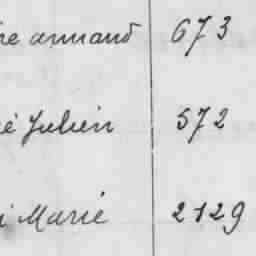 re armand 673
é Julien 572
i Marie 2129